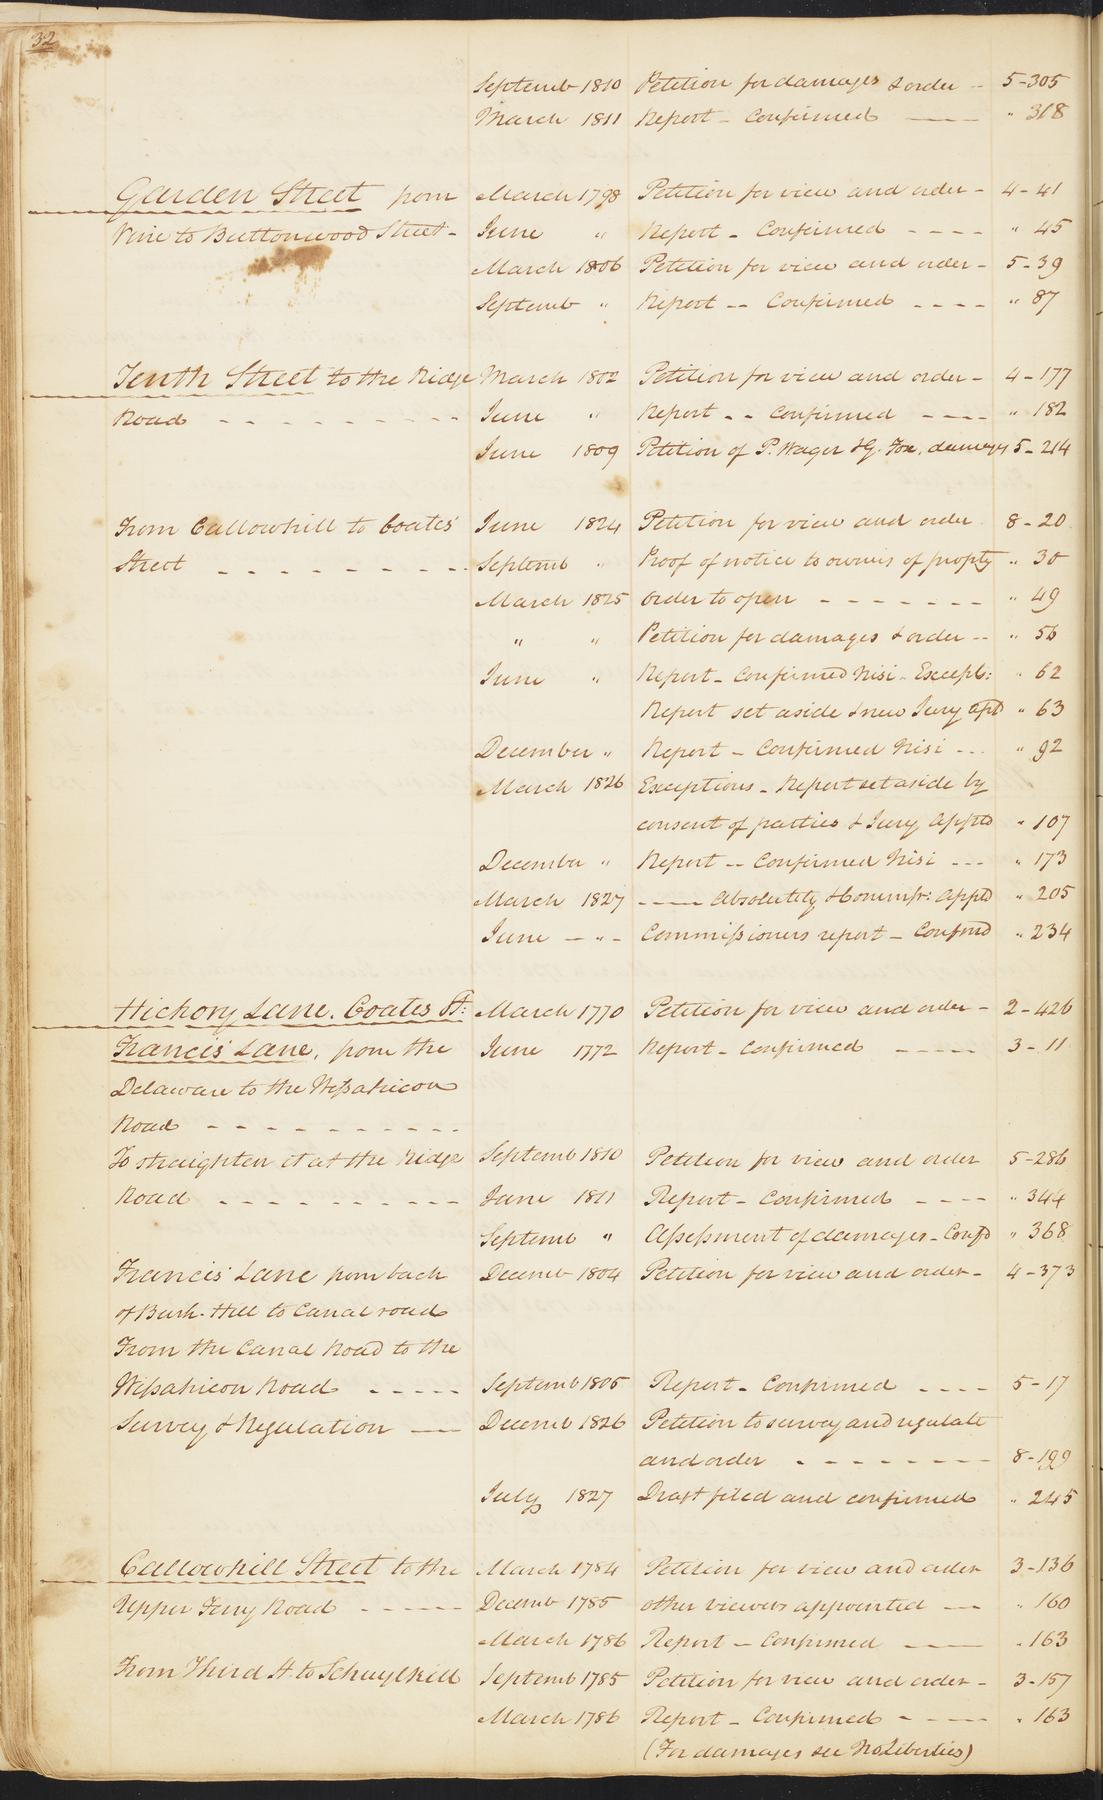 32
Septemb 1810 Petition for damages & order -- 5-305
March 1811 Report - Confirmed —— " 318
Garden Street from March 1798 Petition for view and order - 4-41
Vine to Buttonwood Street - June " Report - Confirmed - - - - " 45
March 1806 Petition for view and order - 5-39
Septemb " Report -- Confirmed - - - - " 87
Tenth Street to the Ridge March 1802 Petition for view and order - 4-177
Road - - - - - - - - - June " Report -- Confirmed - - - - " 182
June 1809 Petition of P. Wager & G. Fox, damages 5-214
From Callowhill to Coates' June 1824 Petition for view and order 8-20
Street - - - - - - - - - Septemb " Proof of notice to owners of propty " 30
March 1825 Order to open - - - - - - - " 49
" " Petition for damages & order -- " 56
June " Report - Confirmed Nisi - Except: " 62
Report set aside & new Jury aptd " 63
December " Report - Confirmed Nisi - - - " 92
March 1826 Exceptions - Report set aside by
consent of parties & Jury Apptd " 107
December " Report -- Confirmed Nisi - - - " 173
March 1827 —— Absolutely & Commissr: Apptd " 205
June - " - Commissioners report - Confmd " 234
Hickory Lane. Coates St: March 1770 Petition for view and order - 2-426
Francis' Lane, from the June 1772 Report - Confirmed - - - - 3-11
Delaware to the Wissahicon
Road - - - - - - - - - -
To straighten it at the Ridge Septemb 1810 Petition for view and order 5-286
Road - - - - - - - - - June 1811 Report - Confirmed - - - - " 344
Septemb " Assessment of damages - Confd " 368
Francis' Lane from back Decemb 1804 Petition for view and order - 4-373
of Bush-Hill to Canal road
From the Canal Road to the
Wissahicon Road - - - - - Septemb 1805 Report - Confirmed - - - - 5-17
Survey & Regulation —— Decemb 1826 Petition to survey and regulate
and order - - - - - - - - 8-199
July 1827 Draft filed and confirmed " 245
Callowhill Street to the March 1784 Petition for view and order 3-136
Upper Ferry Road - - - - - Decemb 1785 Other viewers appointed —— " 160
March 1786 Report - Confirmed —— " 163
From Third St. to Schuylkill Septemb 1785 Petition for view and order - 3-157
March 1786 Report - Confirmed - - - - " 163
(For damages see No. Liberties)